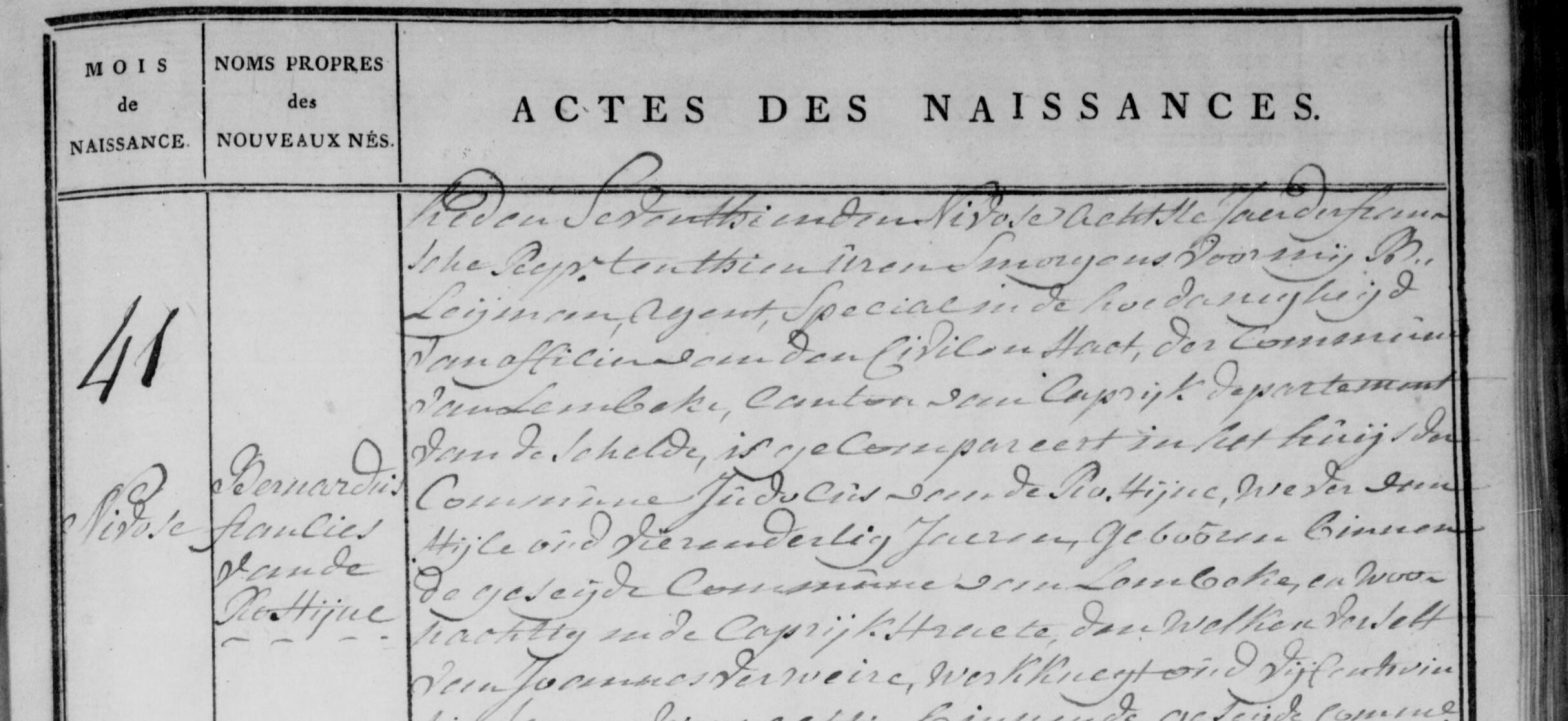 MOIS
de
NAISSANCE.
NOMS PROPRES
des
NOUVEAUX NÉS.
ACTES DES NAISSANCES.
41
Nivose
Bernardus
francies
vande
Rostijne
heden Seventhienden Nivose achtste Jaer der fran-
sche Repr. ten thien uren Smorgens voor mij B.
Leijman, Agent, Special in de hoedanigheijd
van officier van den Civilen staet, der Commune
van Lembeke, Canton van Caprijk departement
van de Schelde, is geCompareert in het huijs der
Commune Judocus vande Rostijne, wever van
stijle oud vierendertig Jaeren, Gebooren binnen
de geseijde Commune van Lembeke, en woo-
nachtig in de Caprijkstraete, den welken verselt
van Joannes verweire, werkknegt oud vijfentwin
binnen de geseijde Comme